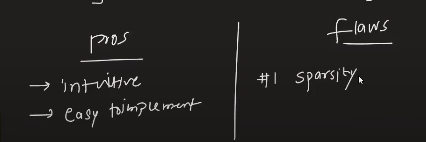 pros
→ intuitive
→ easy to implement
flaws
#1 sparsity